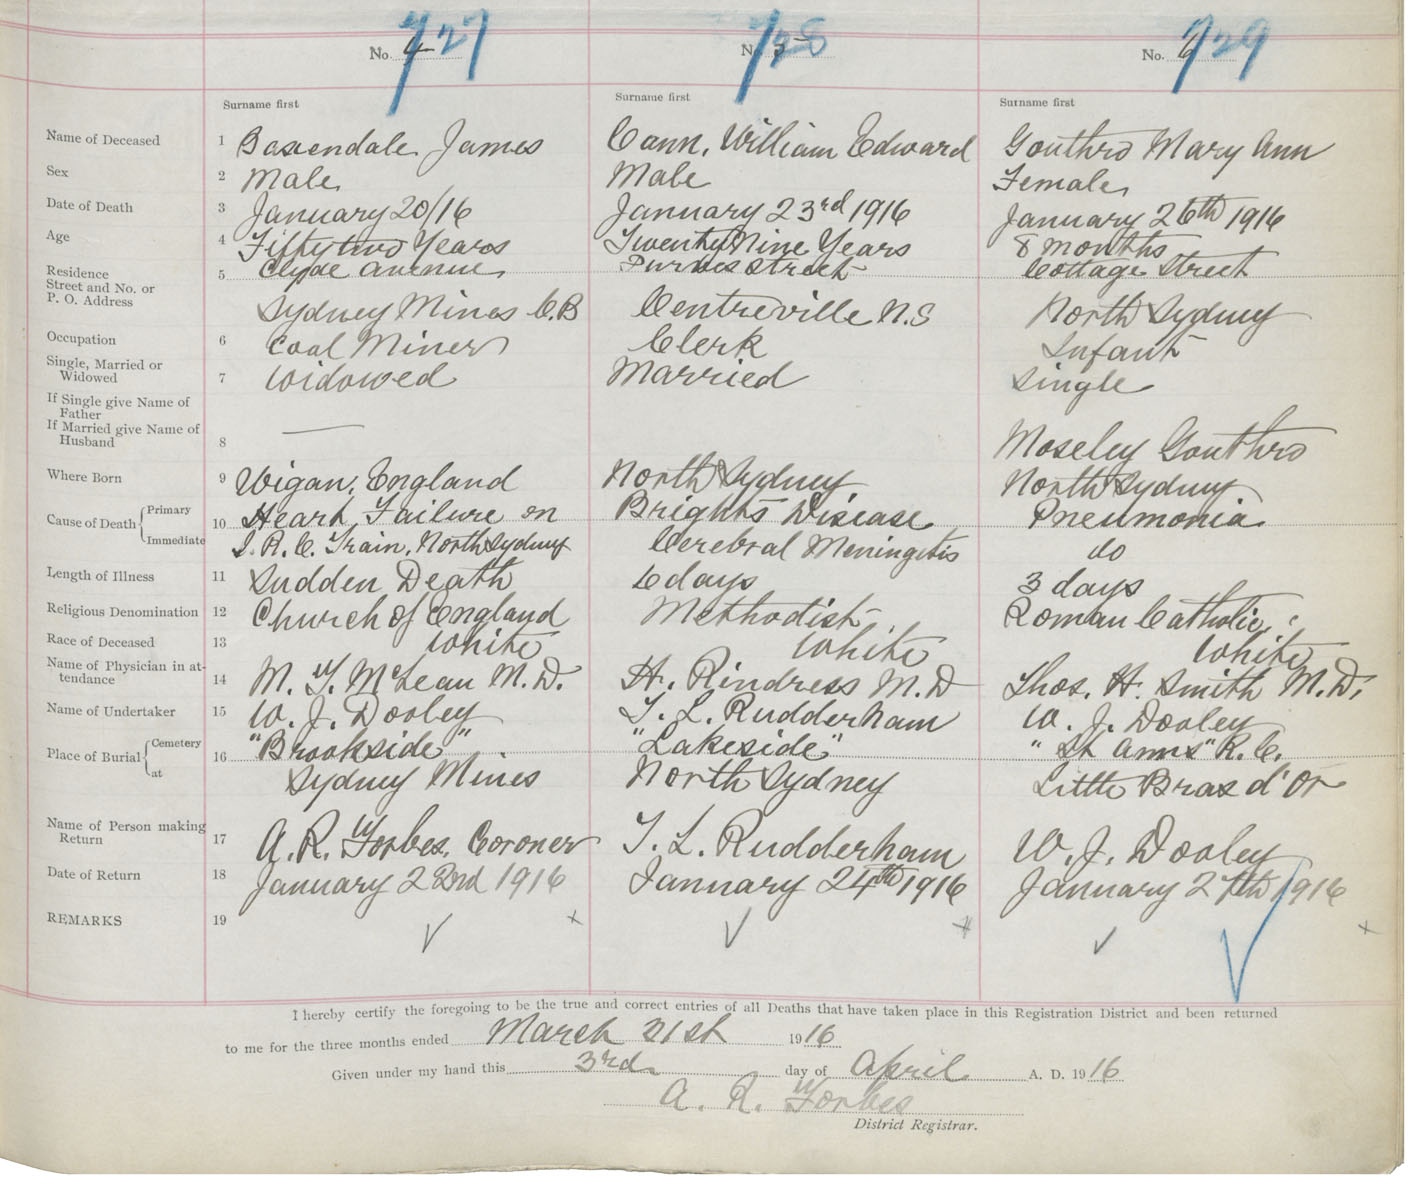 No. 4 727
No. 5 728
No. 6 729
Surname first
Surname first
Surname first
Name of Deceased 1 Baxendale James
Cann, William Edward
Gouthro Mary Ann
Sex 2 Male
Male
Female
Date of Death 3 January 20/16
January 23rd 1916
January 26th 1916
Age 4 Fifty two Years
Twenty Nine Years
8 months
Residence
Street and No. or
P. O. Address
5 Clyde Avenue
Sydney Mines C.B
Purves Street
Centreville N.S
Cottage Street
North Sydney
Occupation 6 Coal Miner
Clerk
Infant
Single, Married or
Widowed 7 Widowed
Married
Single
If Single give Name of
Father
If Married give Name of
Husband 8 —
Moseley Gouthro
Where Born 9 Wigan, England
North Sydney
North Sydney
Cause of Death { Primary
Immediate
10 Heart Failure on
I. R. C. Train, North Sydney
Brights Disease
Cerebral Meningitis
Pneumonia
do
Length of Illness 11 Sudden Death
6 days
3 days
Religious Denomination 12 Church of England
Methodist
Roman Catholic
Race of Deceased 13 White
White
White
Name of Physician in at-
tendance 14 M. T. McLean M.D.
H. Rindress M.D
Thos. H. Smith M.D.
Name of Undertaker 15 W. J. Dooley
T. L. Rudderham
W. J. Dooley
Place of Burial { Cemetery
at
16 "Brookside"
Sydney Mines
"Lakeside"
North Sydney
"St Anns" R.C.
Little Bras d'Or
Name of Person making
Return 17 A. R. Forbes, Coroner
T. L. Rudderham
W. J. Dooley
Date of Return 18 January 22nd 1916
January 24th 1916
January 27th 1916
REMARKS 19
I hereby certify the foregoing to be the true and correct entries of all Deaths that have taken place in this Registration District and been returned
to me for the three months ended March 31st 1916
Given under my hand this 3rd day of April A. D. 1916
A. R. Forbes
District Registrar.